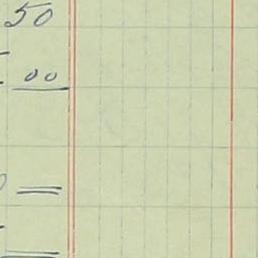 50
00